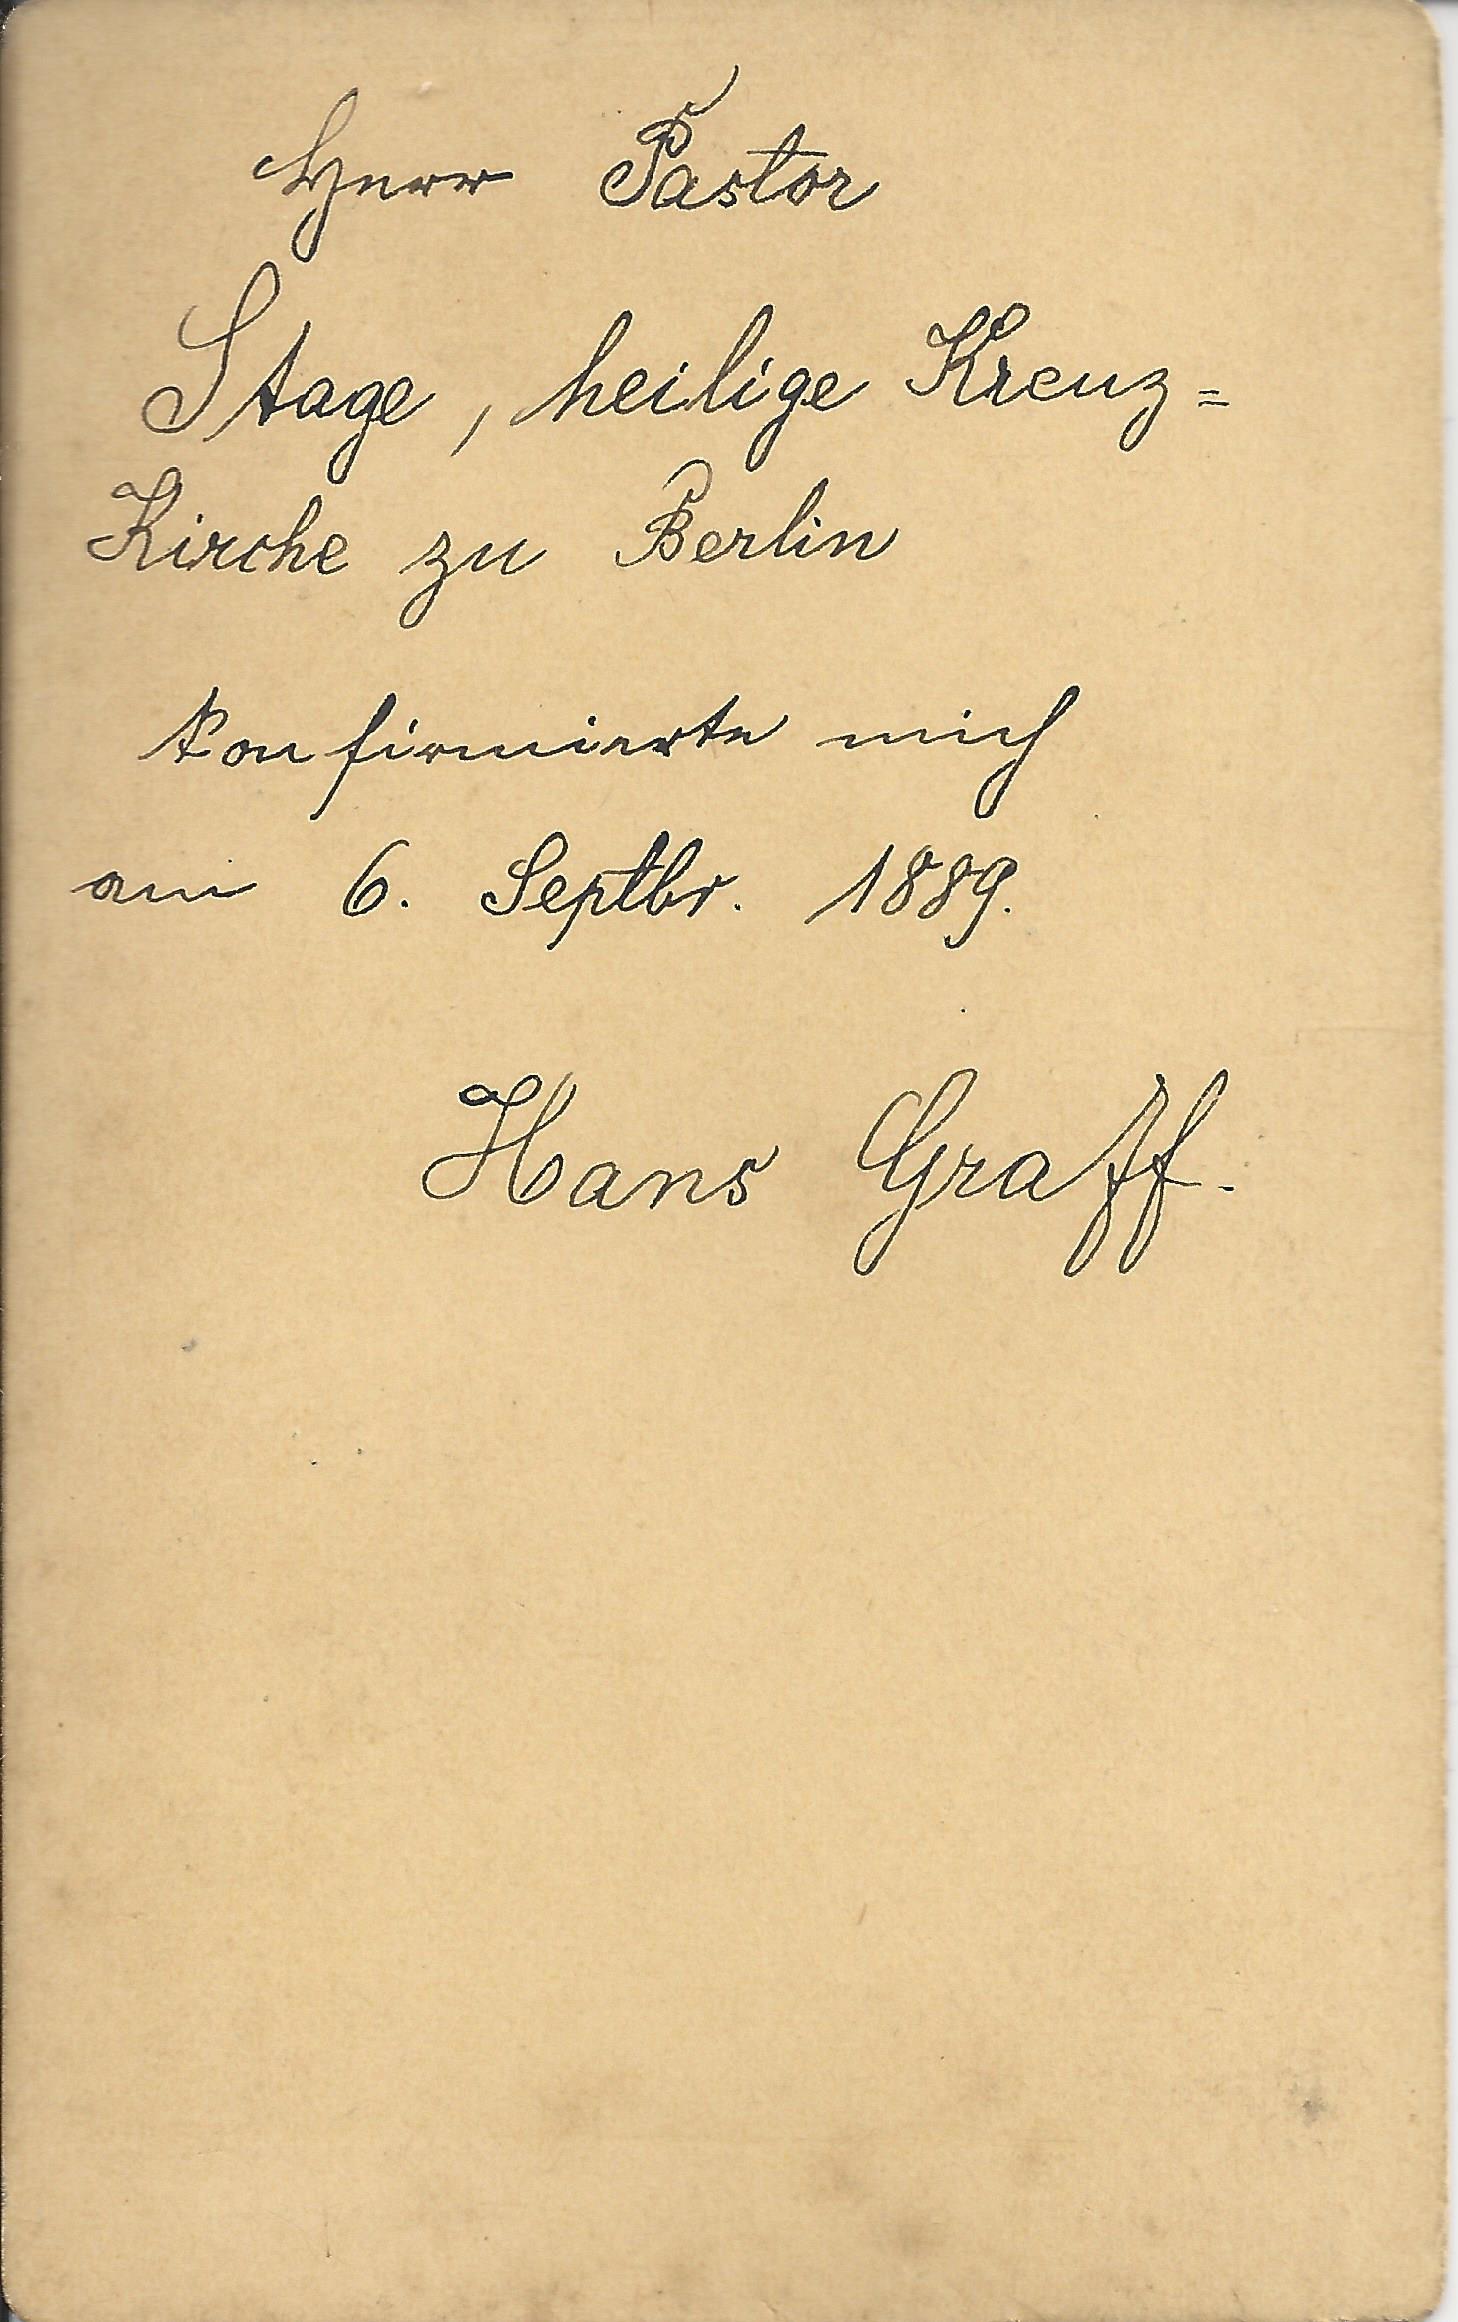 Herr Pastor
Stage, heilige Kreuz=
Kirche zu Berlin
konfirmierte mich
am 6. Septbr. 1889.
Hans Graff.